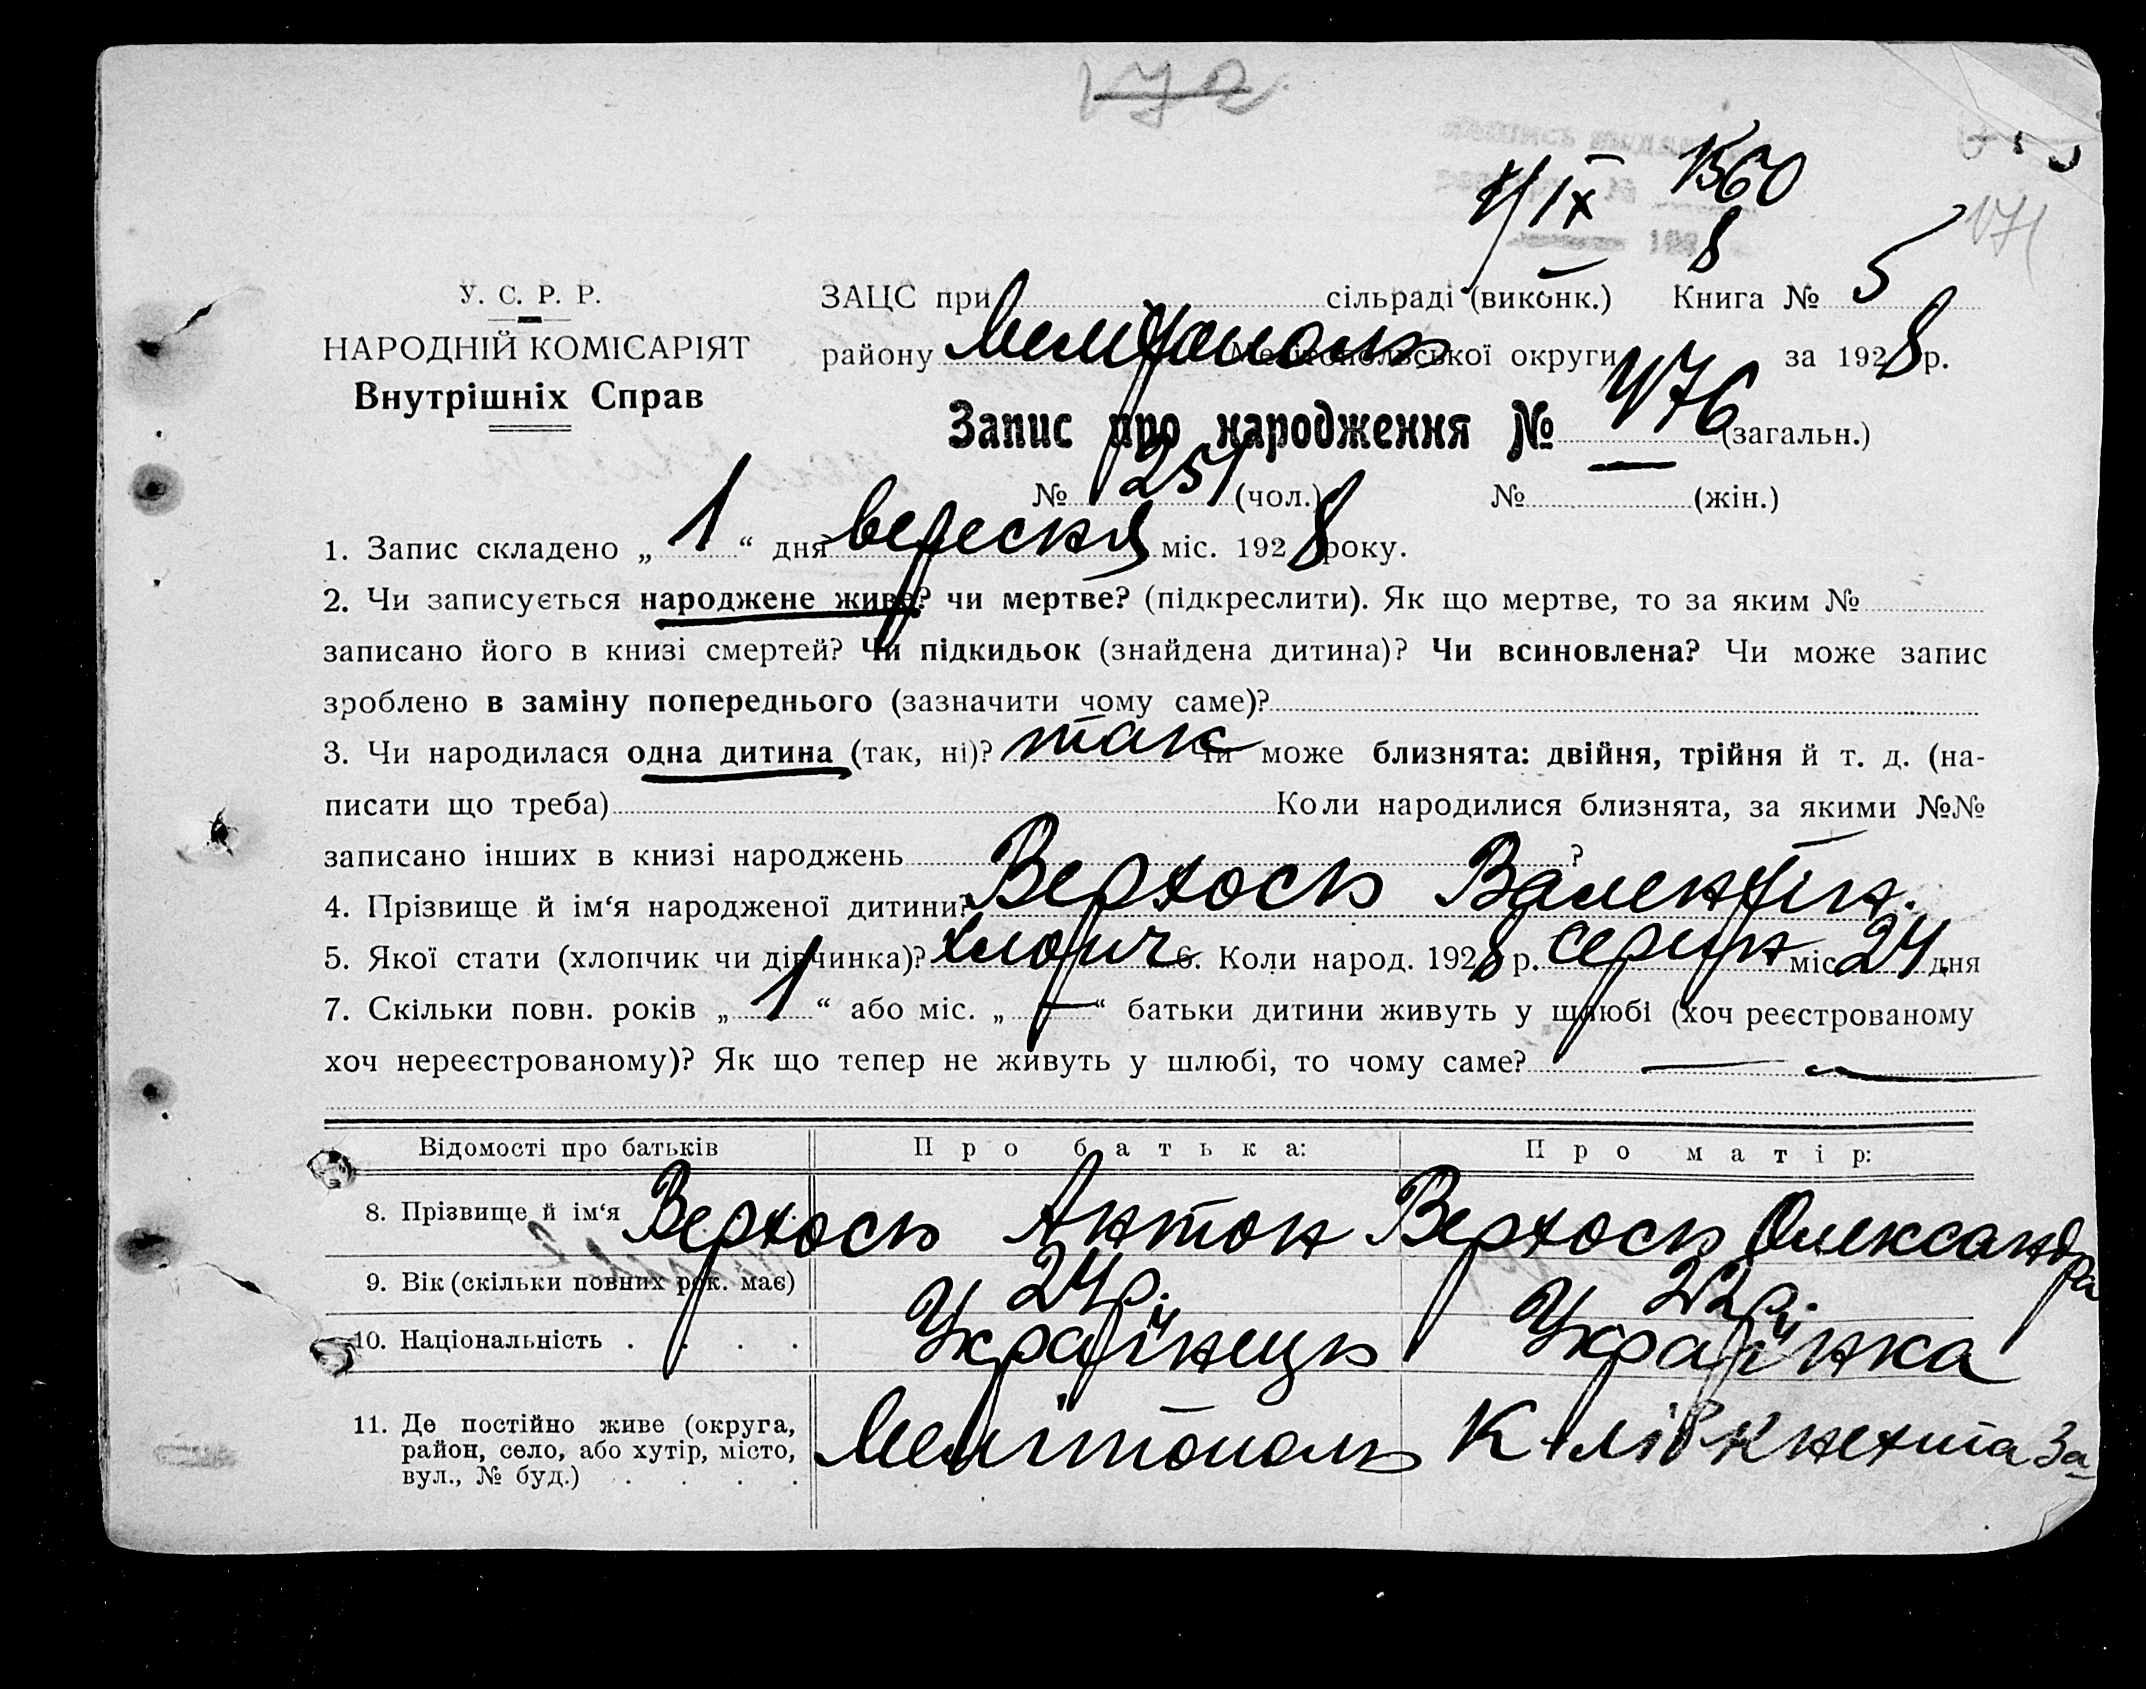 172
4/IX 1560
8
171
У. С. Р. Р.
НАРОДНІЙ КОМІСАРІЯТ
Внутрішніх Справ
ЗАЦС при сільраді (виконк.) Книга № 5
району Мелітополь Мелітопольської округи за 1928 р.
Запис про народження № 476 (загальн.)
№ 251 (чол.) № (жін.)
1. Запис складено „ 1 “ дня вересня міс. 1928 року.
2. Чи записується народжене живе? чи мертве? (підкреслити). Як що мертве, то за яким №
записано його в книзі смертей? Чи підкидьок (знайдена дитина)? Чи всиновлена? Чи може запис
зроблено в заміну попереднього (зазначити чому саме)?
3. Чи народилася одна дитина (так, ні)? так Чи може близнята: двійня, трійня й т. д. (на-
писати що треба) Коли народилися близнята, за якими №№
записано інших в книзі народжень ?
4. Прізвище й ім‘я народженої дитини? Верхось Валентін.
5. Якої стати (хлопчик чи дівчинка)? хлопч 6. Коли народ. 1928 р. серпн міс. 24 дня
7. Скільки повн. років „ 1 “ або міс. „ — “ батьки дитини живуть у шлюбі (хоч реєстрованому
хоч нереєстрованому)? Як що тепер не живуть у шлюбі, то чому саме? — —
Відомості про батьків Про батька: Про матір:
8. Прізвище й ім‘я Верхось Антон Верхось Олександра
9. Вік (скільки повних рок. має) 24р. 22р.
10. Національність . . . . Українець Українка
11. Де постійно живе (округа,
район, село, або хутір, місто,
вул., № буд.) . . . . Мелітополь